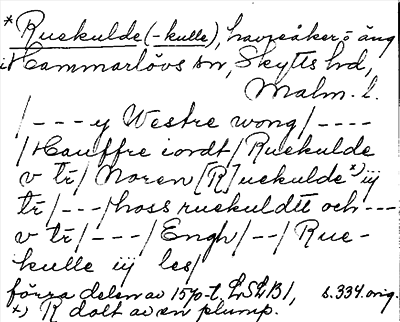 *Ruekulde (-kulle), havreåker o äng
i Hammarlövs sn, Skytts hd,
Malm. l.
/---y Westre wong/----
/Hauffre iordt/Ruekulde
v tr/Noren [R]uekulde x) iij
tr/---/hoss ruekuldtt och---
v tr/---/Engh/--/Rue-
kulle iij les/
förra delen av 1570-t. LSLB1, s.334.orig.
x) R dolt av en plump.